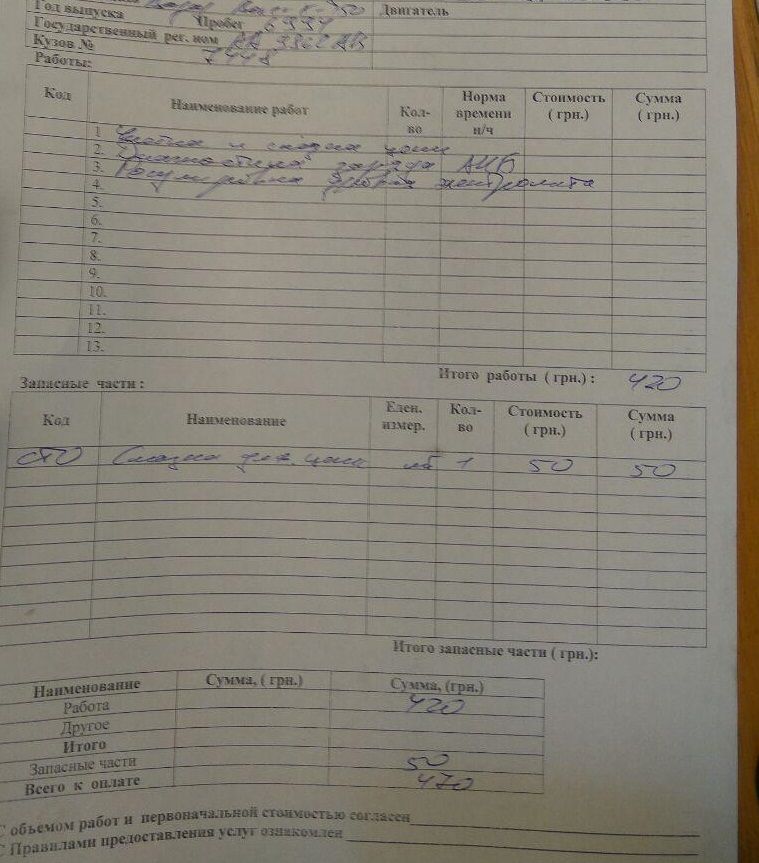 Год выпуска Двигатель
Пробег 6994
Государственный рег. ном
Кузов № 7448
Работы:
Код Наименование работ Кол-во Норма времени н/ч Стоимость ( грн.) Сумма ( грн.)
1 Чистка и смазка цепи
2. Диагностика заряда АКБ
3. Регулировка уровня электролита
4.
5.
6.
7.
8.
9.
10.
11.
12.
13.
Итого работы ( грн.) : 420
Запасные части :
Код Наименование Един. измер. Кол-во Стоимость ( грн.) Сумма ( грн.)
СТО Смазка для цепи 1 50 50
Итого запасные части ( грн.):
Наименование Сумма, ( грн.) Сумма, (грн.)
Работа 420
Другое
Итого
Запасные части 50
Всего к оплате 470
С объемом работ и первоначальной стоимостью согласен
С Правилами предоставления услуг ознакомлен